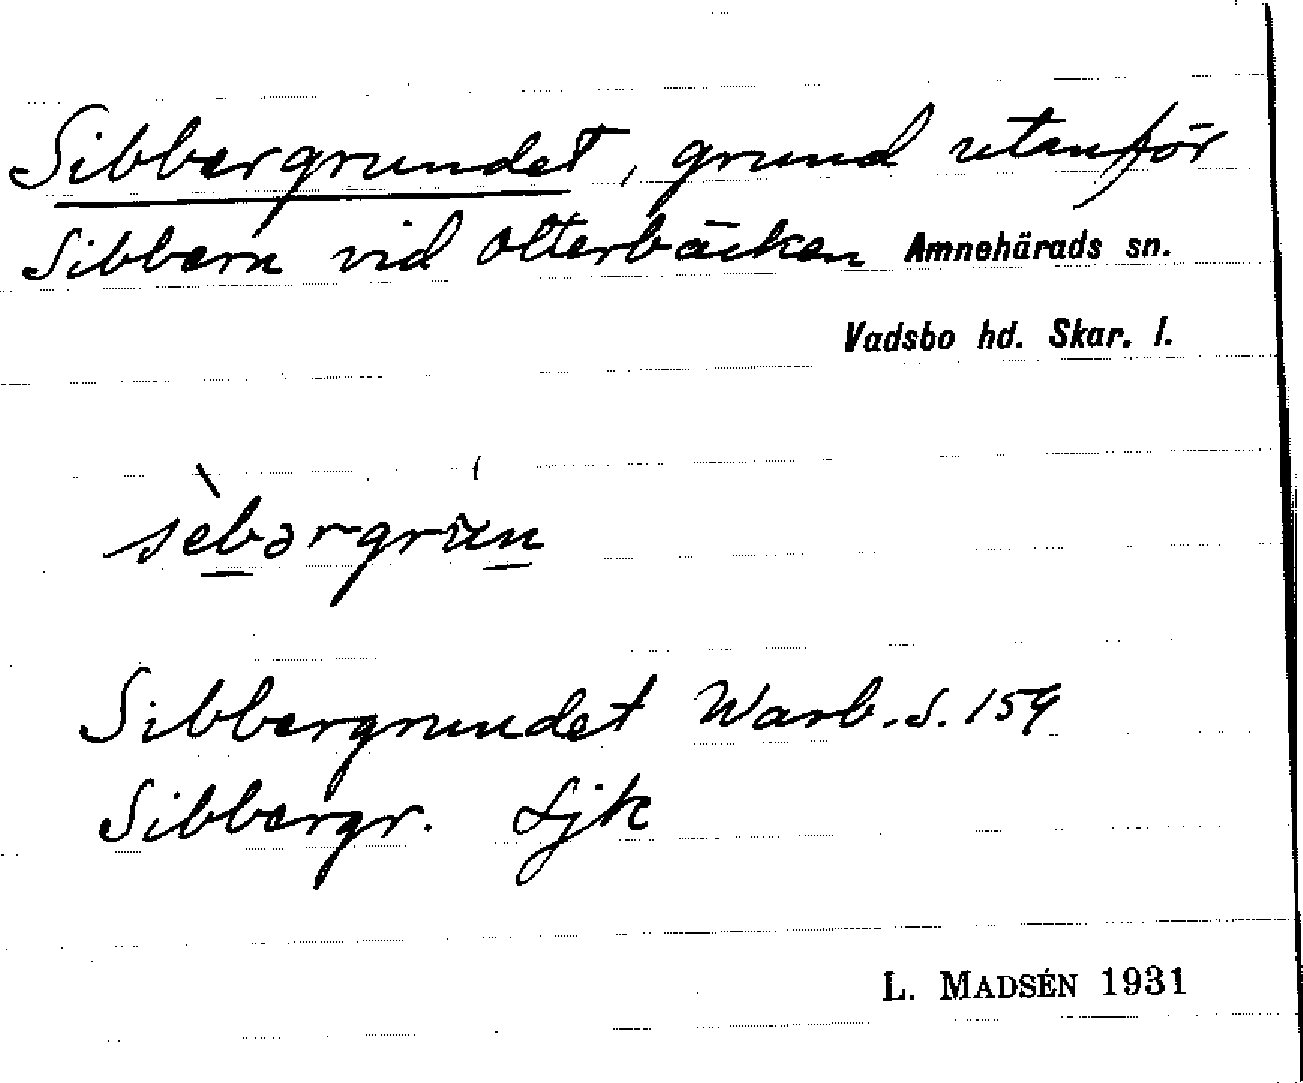 Sibbergrundet, grund utanför
Sibbern vid Otterbäcken Amnehärads sn.
Vadsbo hd. Skar. l.
sèbərgrún
Sibbergrundet Warb. s. 159
Sibbergr. Sjk
L. MADSÉN 1931